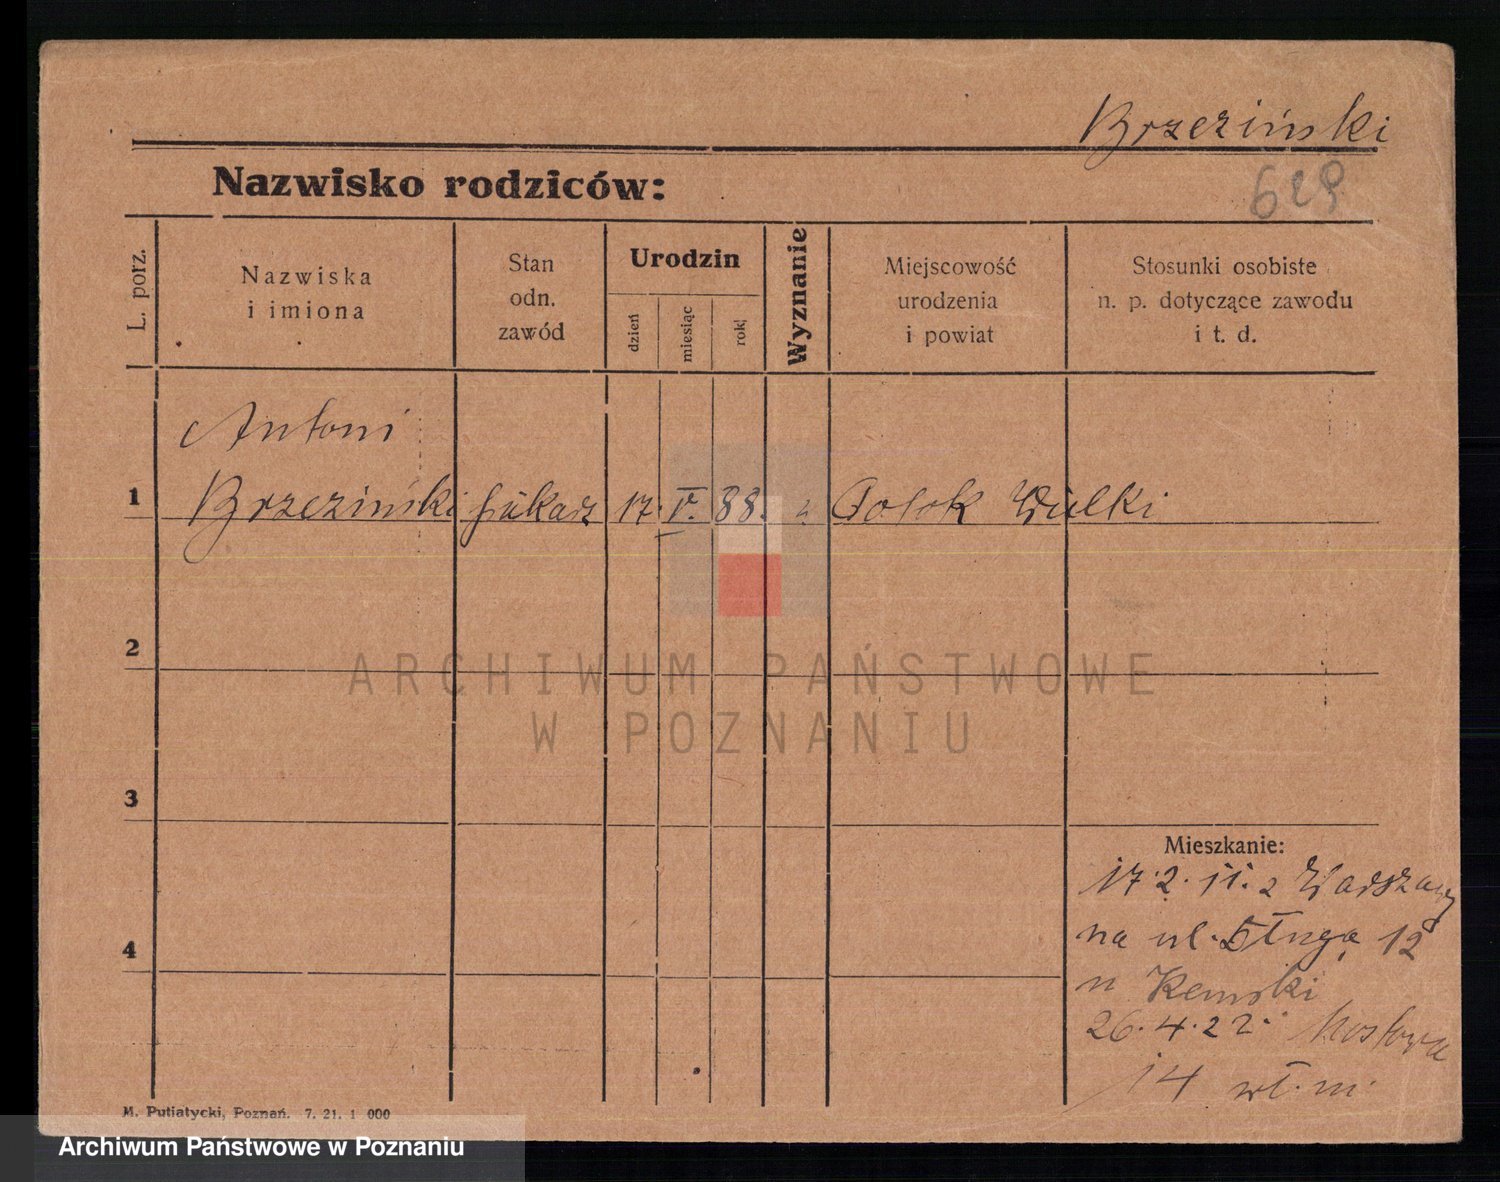 Brzeziński
Nazwisko rodziców:
629
L. porz.
Nazwiska
i imiona
Stan
odn.
zawód
Urodzin
dzień
miesiąc
rok
Wyznanie
Miejscowość
urodzenia
i powiat
Stosunki osobiste
n. p. dotyczące zawodu
i t. d.
Antoni
1 Brzeziński 17. V. 88. Potok Wielki
2
ARCHIWUM PAŃSTWOWE
W POZNANIU
3
Mieszkanie:
17. 2. 11. z Warszawy
na ul. Długa 12
4
u Kemski
26. 4. 22. Mostowa
14 wł. m.
M. Putiatycki, Poznań. 7. 21. 1 000
Archiwum Państwowe w Poznaniu